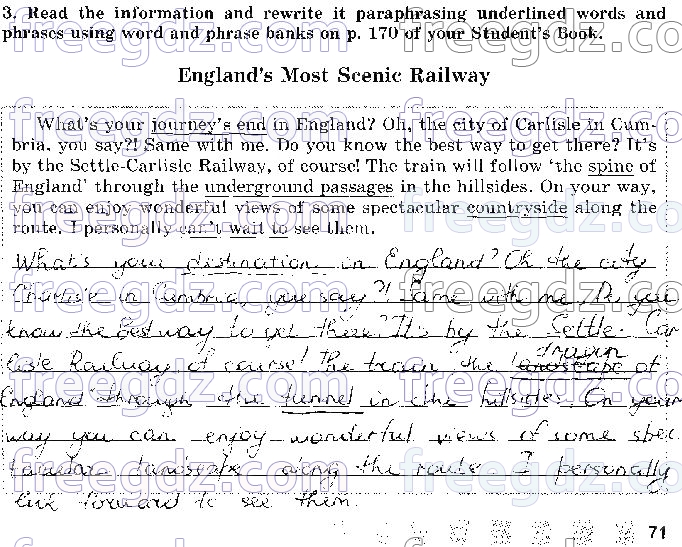 3. Read the information and rewrite it paraphrasing underlined words and
phrases using word and phrase banks on p. 170 of your Student's Book.
England's Most Scenic Railway
What's your journey's end in England? Oh, the city of Carlisle in Cum-
bria, you say?! Same with me. Do you know the best way to get there? It's
by the Settle-Carlisle Railway, of course! The train will follow 'the spine of
England' through the underground passages in the hillsides. On your way,
you can enjoy wonderful views of some spectacular countryside along the
route. I personally can't wait to see them.
What's your distination in England? Oh the city
Charlisle in Cumbria, you say?! Same with me. Do you
know the best way to get there? It's by the Settle-Car
lisle Railway of course! The train the landscape of
England through the tunnel in the hillsides. On your
way you can enjoy wonderful views of some spec
tacular landscape along the route I personally
look forward to see them.
71
freegdz.com